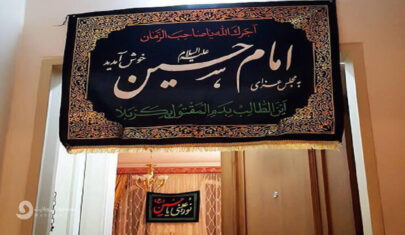 آجرک الله یا صاحب الزمان
به مجلس عزای امام حسین علیه السلام خوش آمدید
أین الطالب بدم المقتول بکربلا